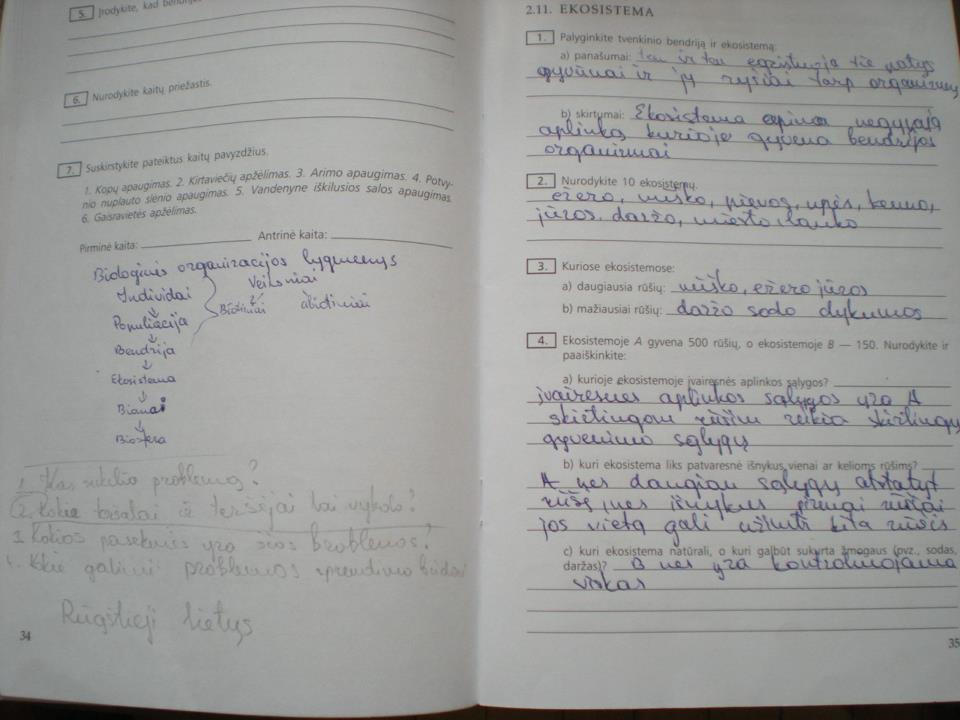 5. Įrodykite, kad bendrijos
6. Nurodykite kaitų priežastis.
7. Suskirstykite pateiktus kaitų pavyzdžius.
1. Kopų apaugimas. 2. Kirtaviečių apžėlimas. 3. Arimo apaugimas. 4. Potvy-
nio nuplauto slėnio apaugimas. 5. Vandenyne iškilusios salos apaugimas.
6. Gaisravietės apžėlimas.
Pirminė kaita: Antrinė kaita:
Biologinės organizacijos lygmenys
Individai Veiksniai
Populiacija Biotiniai abiotiniai
Bendrija
Ekosistema
Biomai
Biosfera
1. Kas sukėlė problemą?
2. Kokie taršalai ir teršėjai tai vykdo?
3. Kokios pasekmės yra šios problemos?
4. Kokie galimi problemos sprendimo būdai
Rūgštieji lietys
34
2.11. EKOSISTEMA
1. Palyginkite tvenkinio bendriją ir ekosistemą:
a) panašumai: ten ir ten egzistuoja tie patys
gyvūnai ir jų ryšiai tarp organizmų
b) skirtumai: Ekosistema apima negyvąją
aplinką kurioje gyvena bendrijos
organizmai
2. Nurodykite 10 ekosistemų.
ežero, miško, pievos, upės, kelmo,
jūros, daržo, miesto, lauko
3. Kuriose ekosistemose:
a) daugiausia rūšių: miško, ežero jūros
b) mažiausiai rūšių: daržo sodo dykumos
4. Ekosistemoje A gyvena 500 rūšių, o ekosistemoje B — 150. Nurodykite ir
paaiškinkite:
a) kurioje ekosistemoje įvairesnės aplinkos sąlygos?
įvairesnės aplinkos sąlygos yra A
skirtingom rūšim reikia skirtingų
gyvenimo sąlygų
b) kuri ekosistema liks patvaresnė išnykus vienai ar kelioms rūšims?
A nes daugiau sąlygų atstatyt
rūšį nes išnykus pirmai rūšiai
jos vietą gali užimti kita rūšis
c) kuri ekosistema natūrali, o kuri galbūt sukurta žmogaus (pvz., sodas,
daržas)? B nes yra kontroliuojama
viskas
35